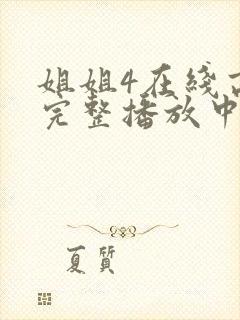 姐姐4在线高
完整播放中
夏質